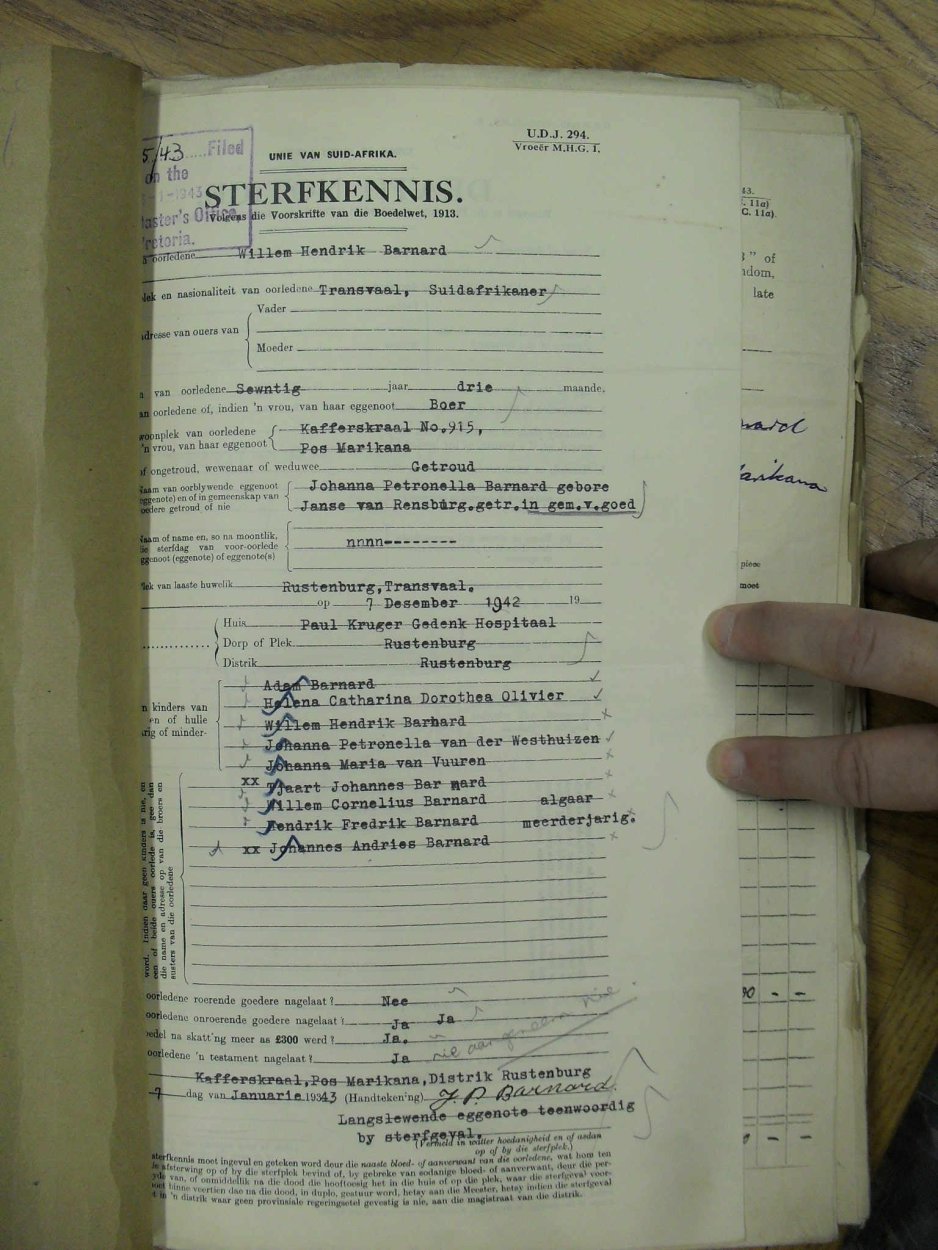 U.D.J. 294.
Vroeër M.H.G. 1.
5/43 Filed
on the
1943
Master's Office
Pretoria.
UNIE VAN SUID-AFRIKA.
STERFKENNIS.
Volgens die Voorskrifte van die Boedelwet, 1913.
oorledene Willem Hendrik Barnard
lek en nasionaliteit van oorledene Transvaal, Suidafrikaner
Vader
adresse van ouers van
Moeder
van oorledene Sewntig jaar drie maande.
an oorledene of, indien 'n vrou, van haar eggenoot Boer
woonplek van oorledene Kafferskraal No.915,
'n vrou, van haar eggenoot Pos Marikana
of ongetroud, wewenaar of weduwee Getroud
Naam van oorblywende eggenoot Johanna Petronella Barnard gebore
eggenote) en of in gemeenskap van
oedere getroud of nie Janse van Rensburg.getr.in gem.v.goed
Naam of name en, so na moontlik,
die sterfdag van voor-oorlede nnnn--------
ggenoot (eggenote) of eggenote(s)
lek van laaste huwelik Rustenburg,Transvaal.
op 7 Desember 1942 19
Huis Paul Kruger Gedenk Hospitaal
Dorp of Plek Rustenburg
Distrik Rustenburg
Adam Barnard
Helena Catharina Dorothea Olivier
n kinders van
en of hulle Willem Hendrik Barnard
rig of minder- Johanna Petronella van der Westhuizen
Johanna Maria van Vuuren
xx Tjaart Johannes Bar nard
Willem Cornelius Barnard algaar
Hendrik Fredrik Barnard meerderjarig.
xx Johannes Andries Barnard
word. Indien daar geen kinders is nie, en
een of beide ouers oorlede is, gee dan
die name en adresse op van die broers en
susters van die oorledene
oorledene roerende goedere nagelaat? Nee
oorledene onroerende goedere nagelaat? Ja Ja
oedel na skatt'ng meer as £300 werd? Ja.
oorledene 'n testament nagelaat? Ja nie aangeneem nie.
Kafferskraal,Pos Marikana,Distrik Rustenburg
7 dag van Januarie 1943 (Handteken'ng) J.P. Barnard.
Langslewende eggenote teenwoordig
by sterfgeval.
(Vermeld in watter hoedanigheid en of aedan
op of by die sterfplek.)
sterfkennis moet ingevul en geteken word deur die naaste bloed- of aanverwant van die oorledene, wat hom ten
afsterwing op of by die sterfplek bevind of, by gebreke van sodanige bloed- of aanverwant, deur die per-
van, of onmiddellik na die dood die hooftoesig het in die huis of op die plek, waar die sterfgeval voor-
binne veertien dae na die dood, in duplo, gestuur word, hetsy aan die Meester, hetsy indien die sterfgeval
in 'n distrik waar geen provinsiale regeringsetel gevestig is nie, aan die magistraat van die distrik.
43.
11a)
C. 11a).
" of
dom,
late
nard
arikana
piece
moet
00 - -
0 - -